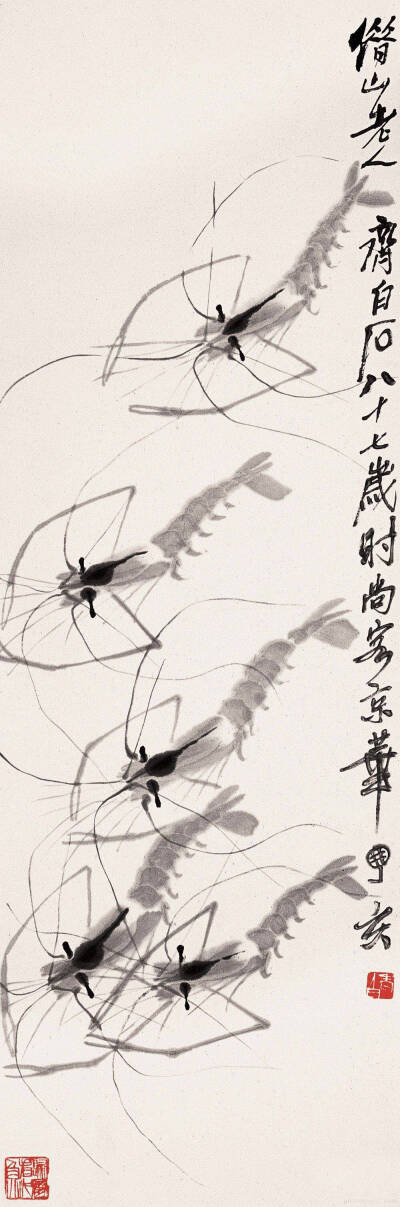 借山老人 齊白石八十七歲时尚客京華 亥